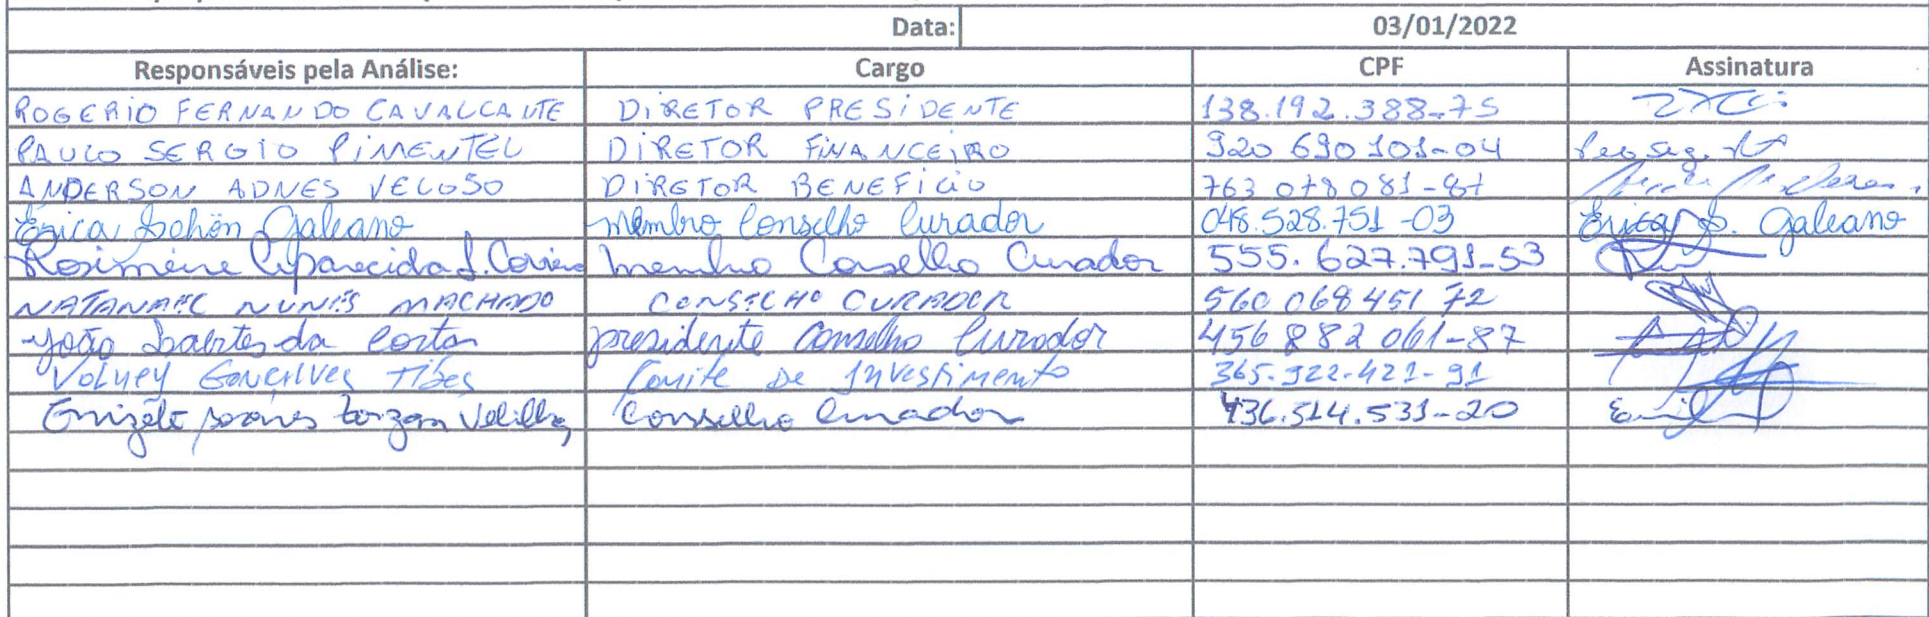 Data: 03/01/2022
Responsáveis pela Análise: Cargo CPF Assinatura
ROGERIO FERNANDO CAVALCANTE DIRETOR PRESIDENTE 138.192.388-75
PAULO SERGIO PIMENTEL DIRETOR FINANCEIRO 920 690 101-04
ANDERSON ADNES VELOSO DIRETOR BENEFICIO 763 078 081-87
Érica Schön Galeano Membro Conselho Curador 048.528.751-03 Érica S. Galeano
Rosimeire Aparecida S. Correia membro Conselho Curador 555.627.791-53
NATANAEL NUNES MACHADO CONSELHO CURADOR 560 068 451 72
João da Costa presidente Conselho Curador 456 882 061-87
VOLNEY GONÇALVES TIBES Comite DE Investimento 365.922.421-91
Enizete Velilha Conselho Curador 436.514.531-20